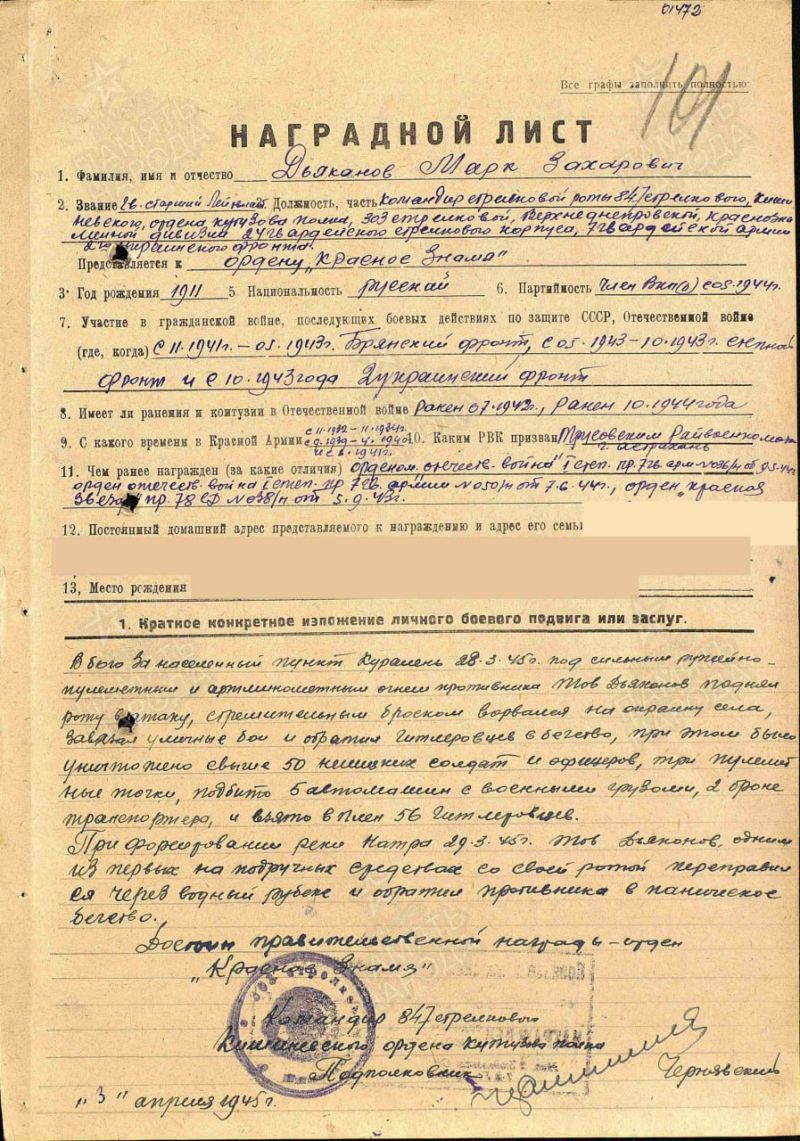 01472
101
Все графы заполнить полностью:
НАГРАДНОЙ ЛИСТ
1. Фамилия, имя и отчество Дьяканов Марк Захарович
2. Звание Гв. старший Лейтенант Должность, часть Командир стрелковой роты 847 стрелкового, Киши
невского, ордена кутузова полка, 303 стрелковой, Верхнеднепровской, Краснозна
менной дивизии 24 гвардейского стрелкового корпуса, 7 гвардейской армии
2го Украинского фронта.
Представляется к ордену „Красное Знамя"
3. Год рождения 1911 5. Национальность русский 6. Партийность Член Вкп(б) с 05.1944г.
7. Участие в гражданской войне, последующих боевых действиях по защите СССР, Отечественной войне
(где, когда) с 11.1941г. – 05.1943г. Брянский фронт, с 05.1943-10.1943г. степной
фронт и с 10.1943 года 2 украинский фронт
8. Имеет ли ранения и контузии в Отечественной войне Ранен 07.1942г., Ранен 10.1944 года
9. С какого времени в Красной Армии с 11.1932 - 11.1934г.
с 9.1939 - 4.1940г. 10. Каким РВК призван Трусовским Райвоенкомат
г. Астрахань
11. Чем ранее награжден (за какие отличия) орденом „отечеств. война" I степ. пр. 7 гв. арм
орден отечеств. война I степ. пр 7 гв. армии №050/н от 7.6.44г., орден „красная
звезда" пр. 78 СД №038/н от 5.9.43г.
12. Постоянный домашний адрес представляемого к награждению и адрес его семьи
13, Место рождения
1. Краткое конкретное изложение личного боевого подвига или заслуг.
В бою за населенный пункт Куралень 28.3.45г. под сильным ружейно-
пулеметным и артминометным огнем противника Тов Дьяконов поднял
роту в атаку, стремительным броском ворвался на окраину села,
завязал уличные бои и обратил гитлеровцев в бегство, при этом было
уничтожено свыше 50 немецких солдат и офицеров, три пулемет
ные точки, подбито 6 автомашин с военными грузами, 2 броне
транспортера, и взято в плен 56 Гитлеровцев.
При форсировании реки Натра 29.3.45г. Тов Дьяконов, одним
из первых на подручных средствах со своей ротой переправил
ся через водный рубеж и обратил противника в паническое
бегство.
Достоин правительственной награды – орден
„Красная Знамя"
Командир 847 стрелкового
Кишиневского ордена кутузова полка
Подполковник Чернявский
„3" апреля 1945г.